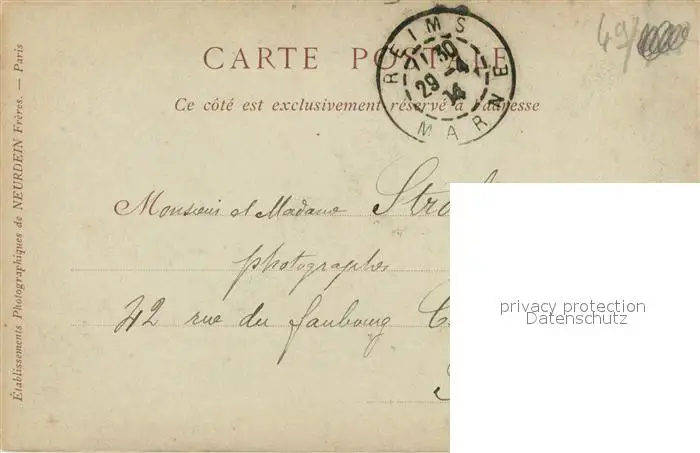 REIMS
11 30
29 -4
14
MARNE
49
CARTE POSTALE
Ce côté est exclusivement réservé à l'adresse
Monsieur et Madame
photographes
42 rue du faubourg
privacy protection
Datenschutz
Établissements Photographiques de NEURDEIN Frères. — Paris